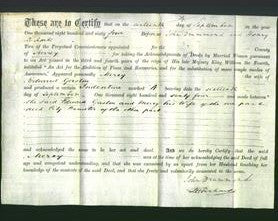 These are to Certify that on the sixteenth day of September in the year
One thousand eight hundred and sixty four Before John Drummond and Henry
Two of the Perpetual Commissioners appointed for the County
of Surrey for taking the acknowledgments of Deeds by Married Women pursuant
to an Act passed in the third and fourth years of the reign of His late Majesty King William the Fourth,
intituled "An Act for the Abolition of Fines and Recoveries, and for the substitution of more simple modes
of Assurance," Appeared personally Mercy the wife of
Edward and
produced a certain Indenture marked A bearing date the sixteenth
day of September One thousand eight hundred and sixty four made between
the said Edward and Mercy his wife of the one part
and of the other part
and acknowledged the same to be her act and deed. And we hereby Certify that the said
Mercy was at the time of her acknowledging the said Deed of full
age and competent understanding, and that she was examined by us apart from her Husband touching her
knowledge of the contents of the said Deed, and that she freely and voluntarily consented to the same.
John Drummond